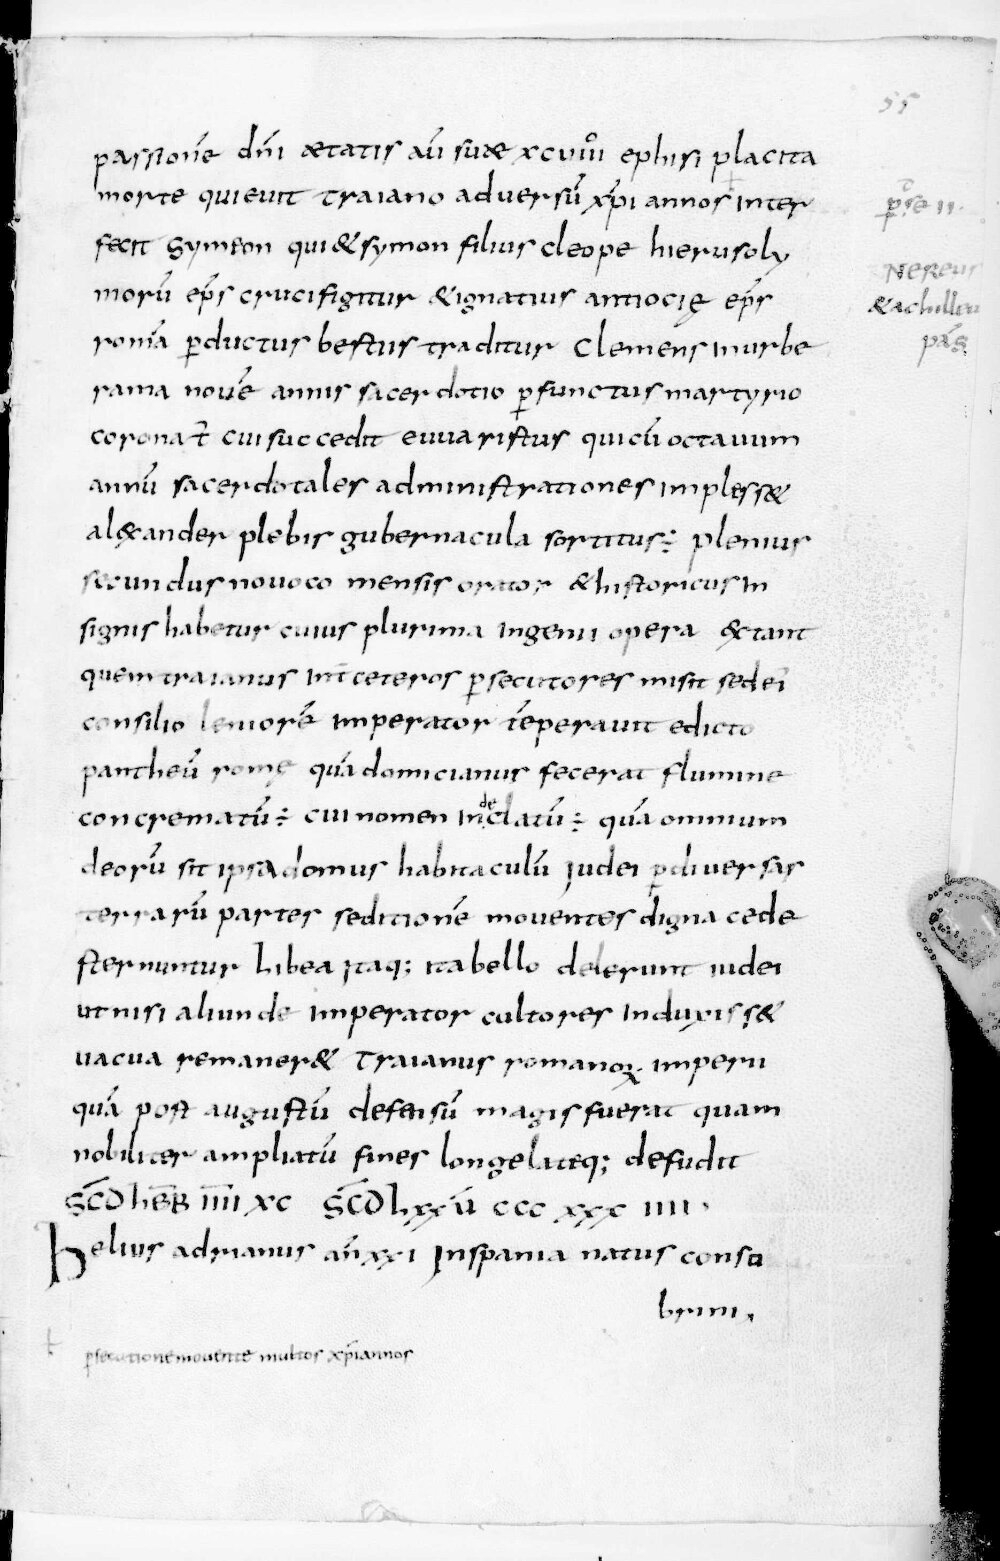 55
passionē dn̄i ætatis aū suæ xcuiiii ephisi placita
morte quieuit traiano aduersū xp̄i annos inter
fecit Symeon qui & symon filius cleope hierusoly
morū ep̄s crucifigitur & ignatius antiocię ep̄s
romā ꝑductus bestus traditur Clemens inurbe
rama nouē annis sacerdotio ꝑfunctus martyrio
coronat̄ cui succedit euuaristus quicū octauum
annū sacerdotales administrationes impless&
al&xander plebis gubernacula sortitus plenius
secundus nouoco mensis orator & historicus in
signis habetur cuius plurima ingenii opera &xtant
quem traianus int̄ ceteros ꝑsecutores misit sed ei
consilio leniorē imperator tēperauit edicto
pantheū romę quā domicianus fecerat flumine
concrematū cui nomen inde datū quā omnium
deorū sit ipsa domus habitaculū Iudei ꝑdiuersas
terrarū partes seditionē mouentes digna cede
sternuntur libea itaq; ita bello delerunt iudei
ut nisi aliunde imperator cultores induxiss&
uacua remaner& Traianus romanoꝝ imperii
quā post augustū defensū magis fuerat quam
nobiliter ampliatū fines longelateq; defudit
SC̄D hēb̄r̄ īīīī xc SC̄D lxxū ccc xxx iiii
Helius adrianus an̄ xxi Inspania natus consti
brini
ꝑsecutione mouente multos xp̄iannos
ꝑse ii
Nereus
& achilleu
pas̄